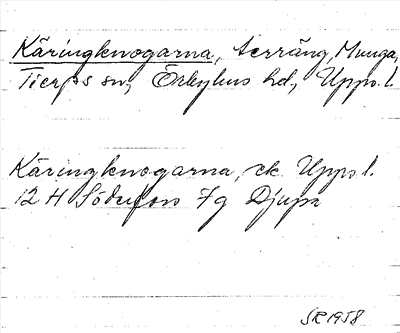 Käringknogarna, terräng, Munga,
Tierps sn, Örbyhus hd, Upps. l.
Käringknogarna, ek. Upps l.
12 H Söderfors 7g Djupa
SR 1958